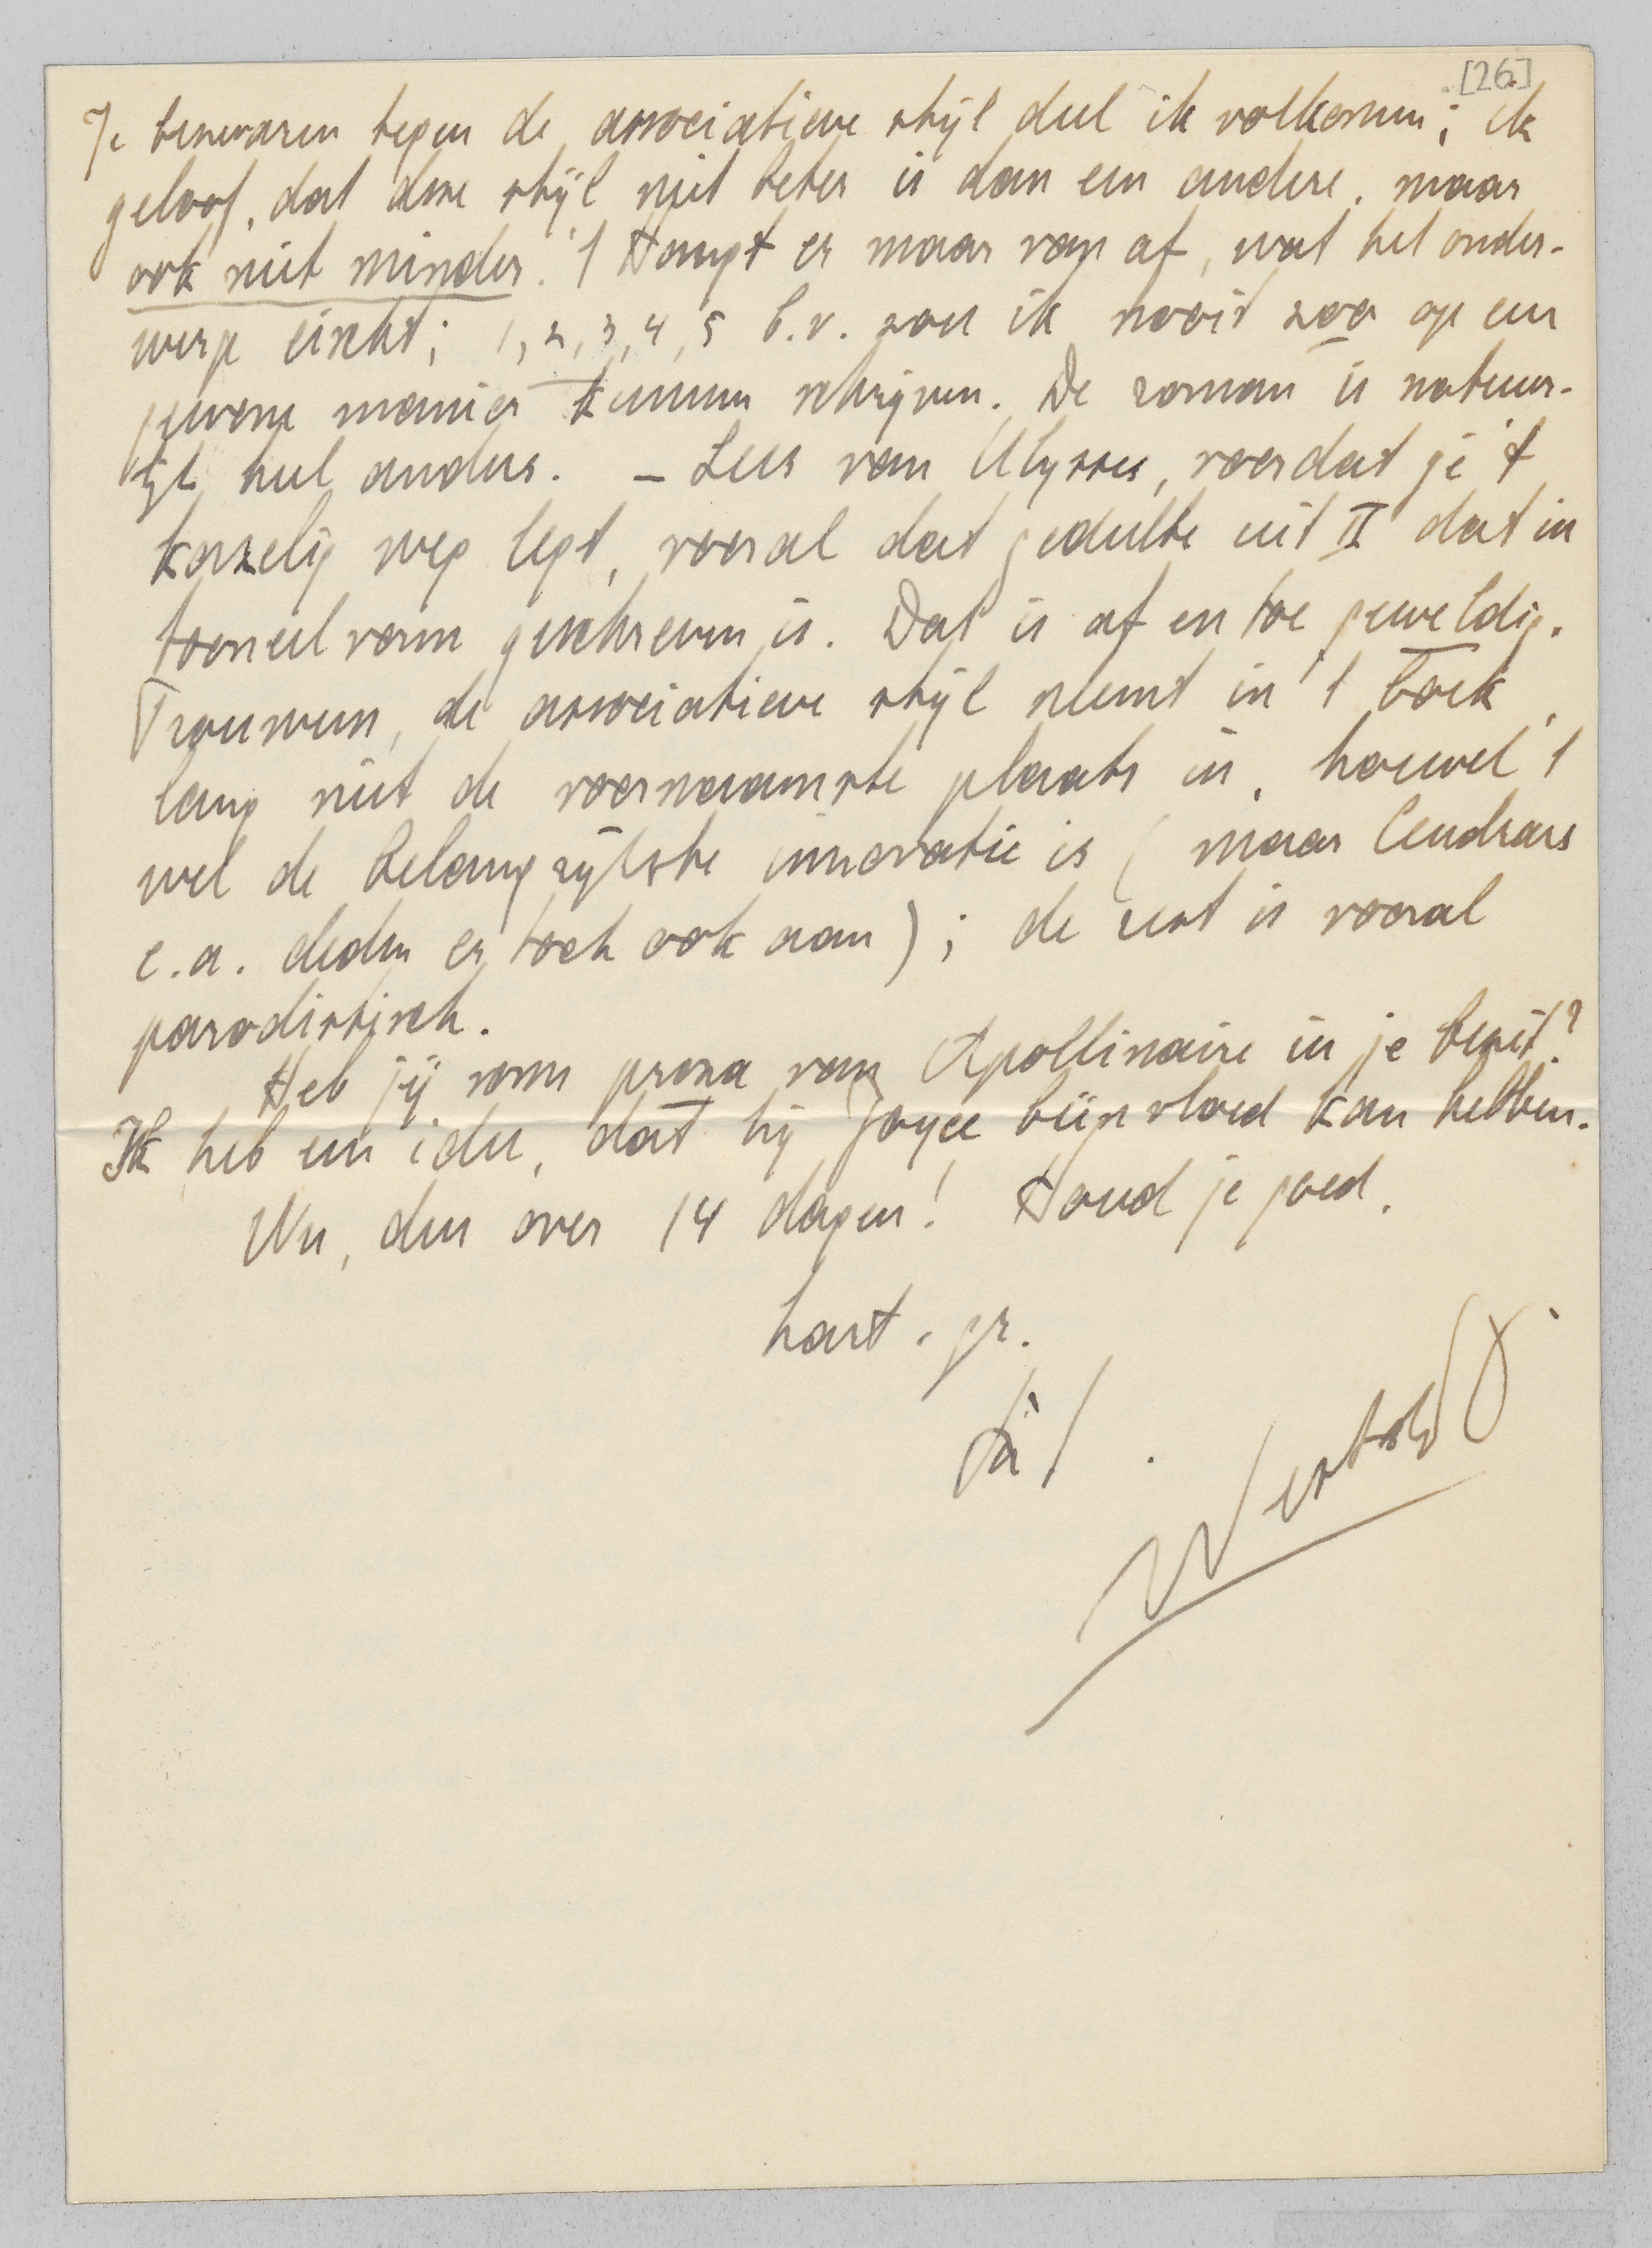 [26]
Je bezwaren tegen de associatieve stijl deel ik volkomen; ik
geloof, dat deze stijl niet beter is dan een andere, maar
ook niet minder. 't Hangt er maar van af, wat het onder-
werp eischt; 1, 2, 3, 4, 5 b.v. zou ik nooit zoo op een
gewone manier kunnen schrijven. De roman is natuur-
lijk heel anders. – Lees van Ulysses, voordat je 't
korzelig weg legt, vooral dat gedeelte uit II dat in
tooneelvorm geschreven is. Dat is af en toe geweldig.
Trouwens, de associatieve stijl neemt in 't boek
lang niet de voornaamste plaats in, hoewel 't
wel de belangrijkste innovatie is (maar Cendrars
e.a. deden er toch ook aan); de rest is vooral
parodistisch.
Heb jij soms proza van Apollinaire in je bezit?
Ik heb een idee, dat hij Joyce beïnvloed kan hebben.
Nu, dus over 14 dagen! Houd je goed.
hart. gr.
Simon Vestdijk